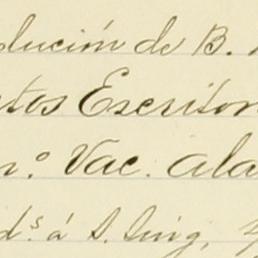 olución de B.
tos Escritor
n.º Vac. ala
d.s á S.